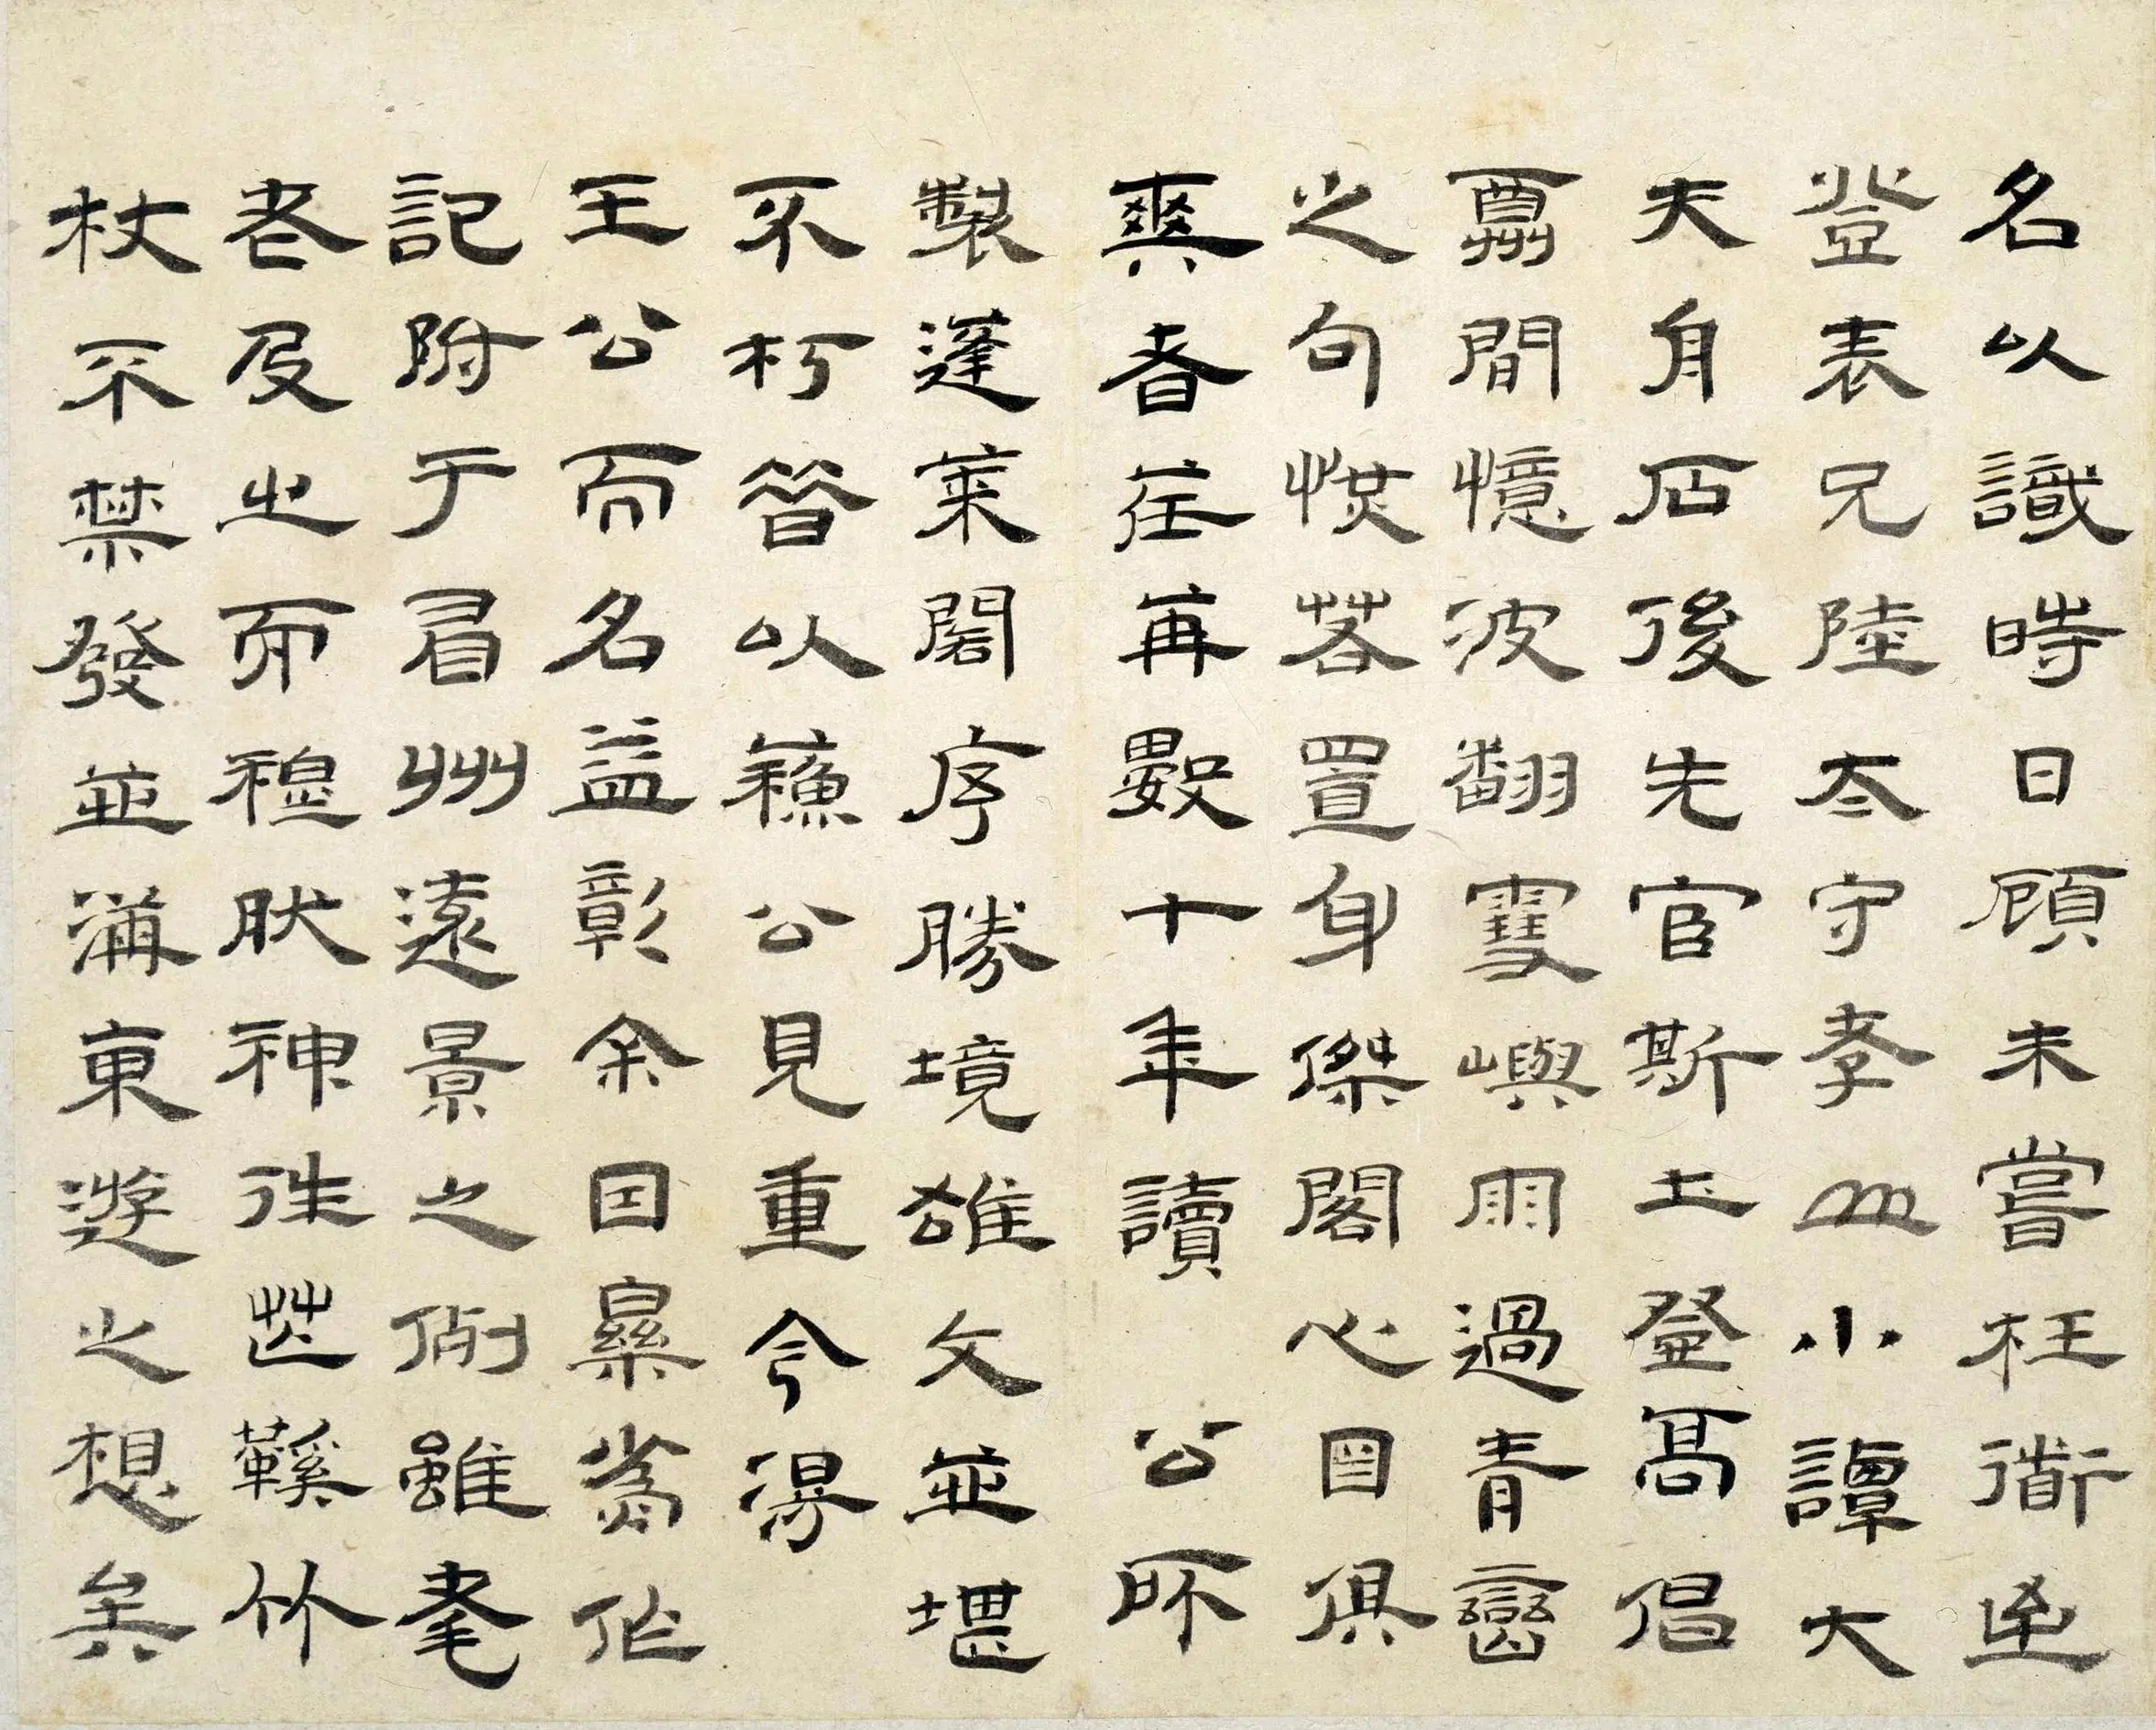 名以識時日顧未嘗枉衜
登表兄陸太守孝山小譚大
夫舟石後先官斯土登高倡
酬間憶波翻雪嶼雨過青巒
之句恍若置身傑閣心目俱
爽者荏苒數十年讀 公所
製蓬萊閣序勝境雄文並堪
不朽昔以蘇公見重今得
王公而名益彰余因翁作
記附于眉州遠景之例雖耄
老及之而穆然神往芒鞵竹
杖不禁發並海東遊之想矣